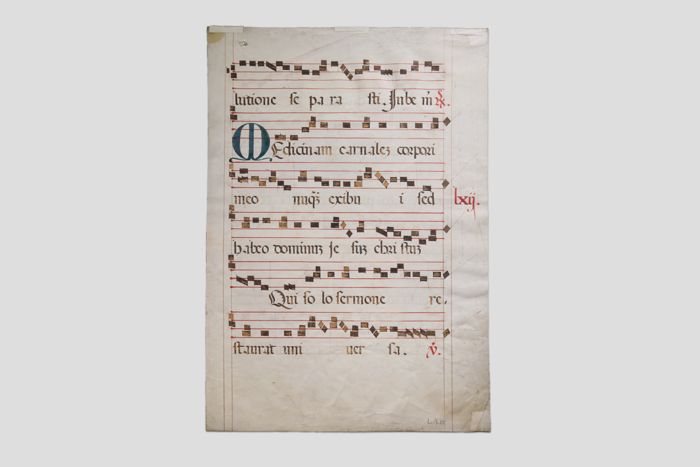 lutione se pa ra sti. Iube m̄ ℟.
Medicinam carnalez corpori
meo nuq̃ꝫ exibu i sed lxij.
habeo dominuz Je suz chri stuz
Qui so lo sermone re.
staurat uni uer sa. ℣.